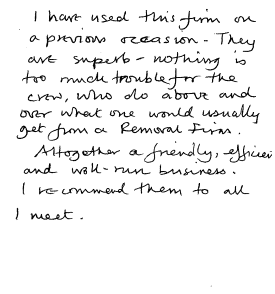 I have used this firm on
a previous occasion - They
are superb - nothing is
too much trouble for the
crew, who do above and
over what one would usually
get from a Removal Firm.
Altogether a friendly, efficien
and well-run business.
I recommend them to all
I meet.